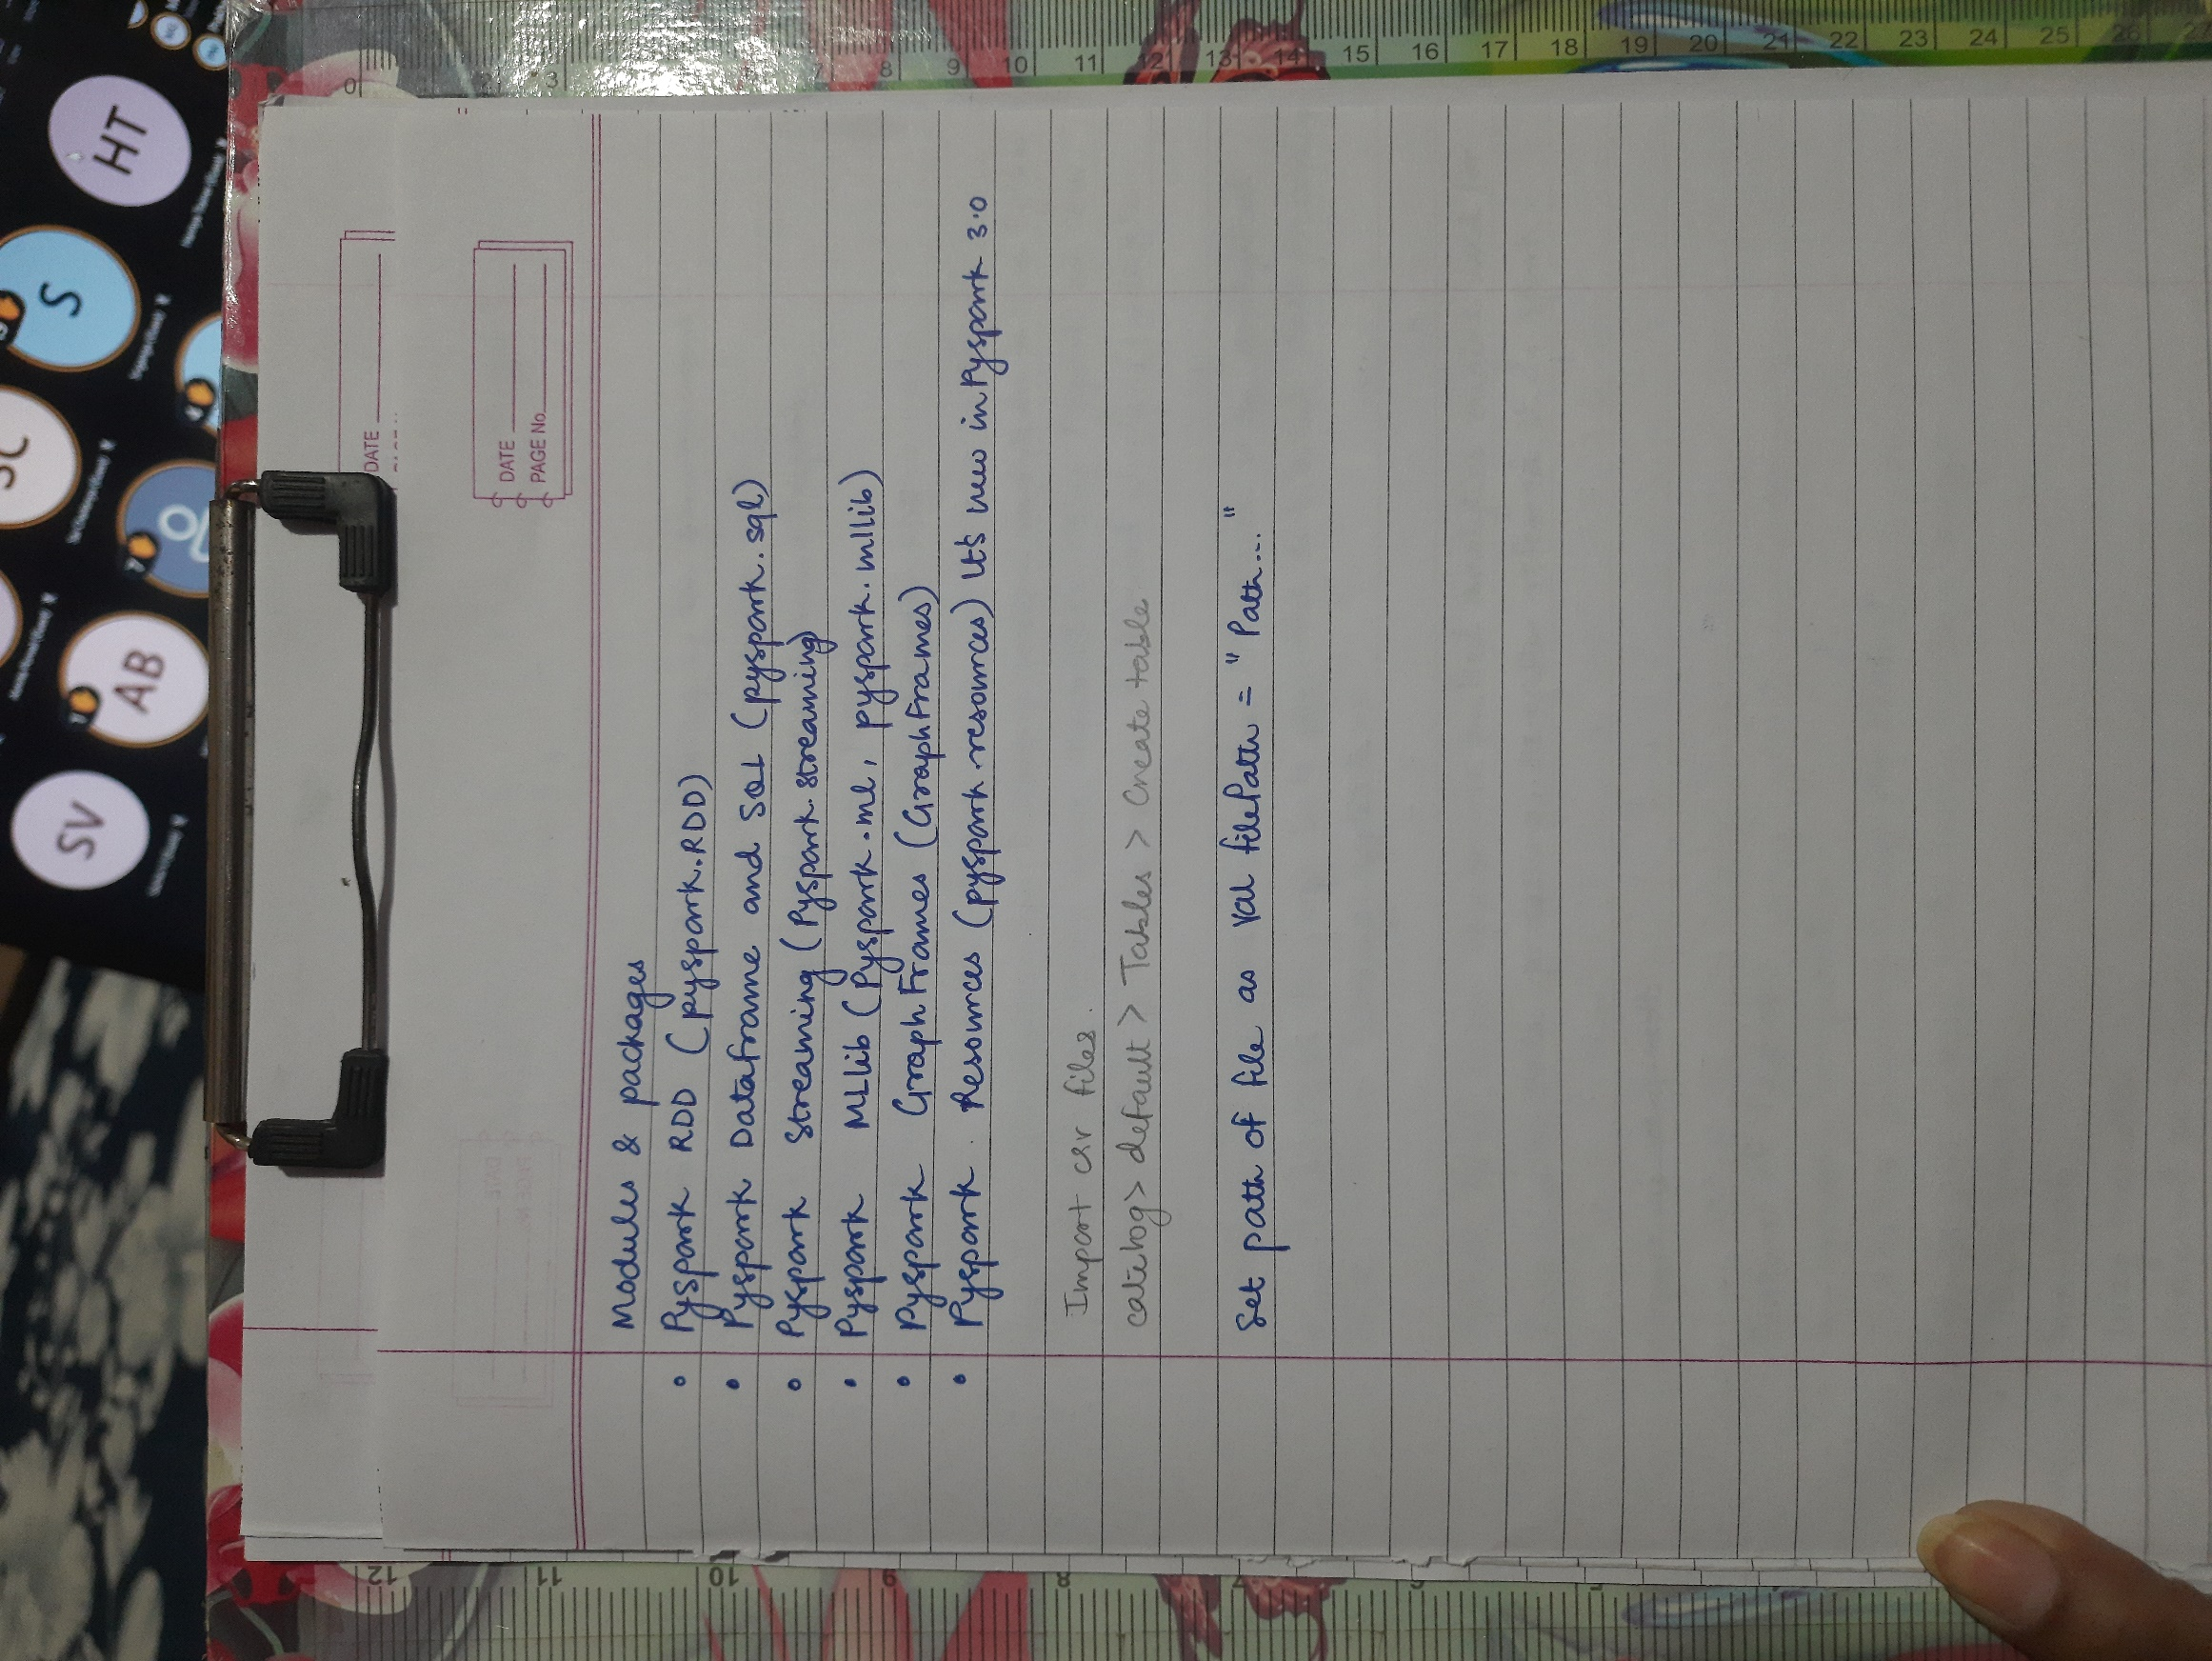 DATE
DATE
PAGE No.
Modules & packages
• Pyspark RDD (pyspark.RDD)
• Pyspark Dataframe and SQL (pyspark.sql)
• Pyspark Streaming (Pyspark.streaming)
• Pyspark MLlib (Pyspark.ml, pyspark.mllib)
• Pyspark GraphFrames (GraphFrames)
• Pyspark Resources (pyspark.resources) It's new in Pyspark 3.0
Import csv files.
catelog > default > Tables > Create table
Set path of file as val filePath = "Path..."
HT
S
AB
SV
0 3 7 8 9 10 11 12 13 14 15 16 17 18 19 20 21 22 23 24 25 26
12 11 10 9 8 7 6 5